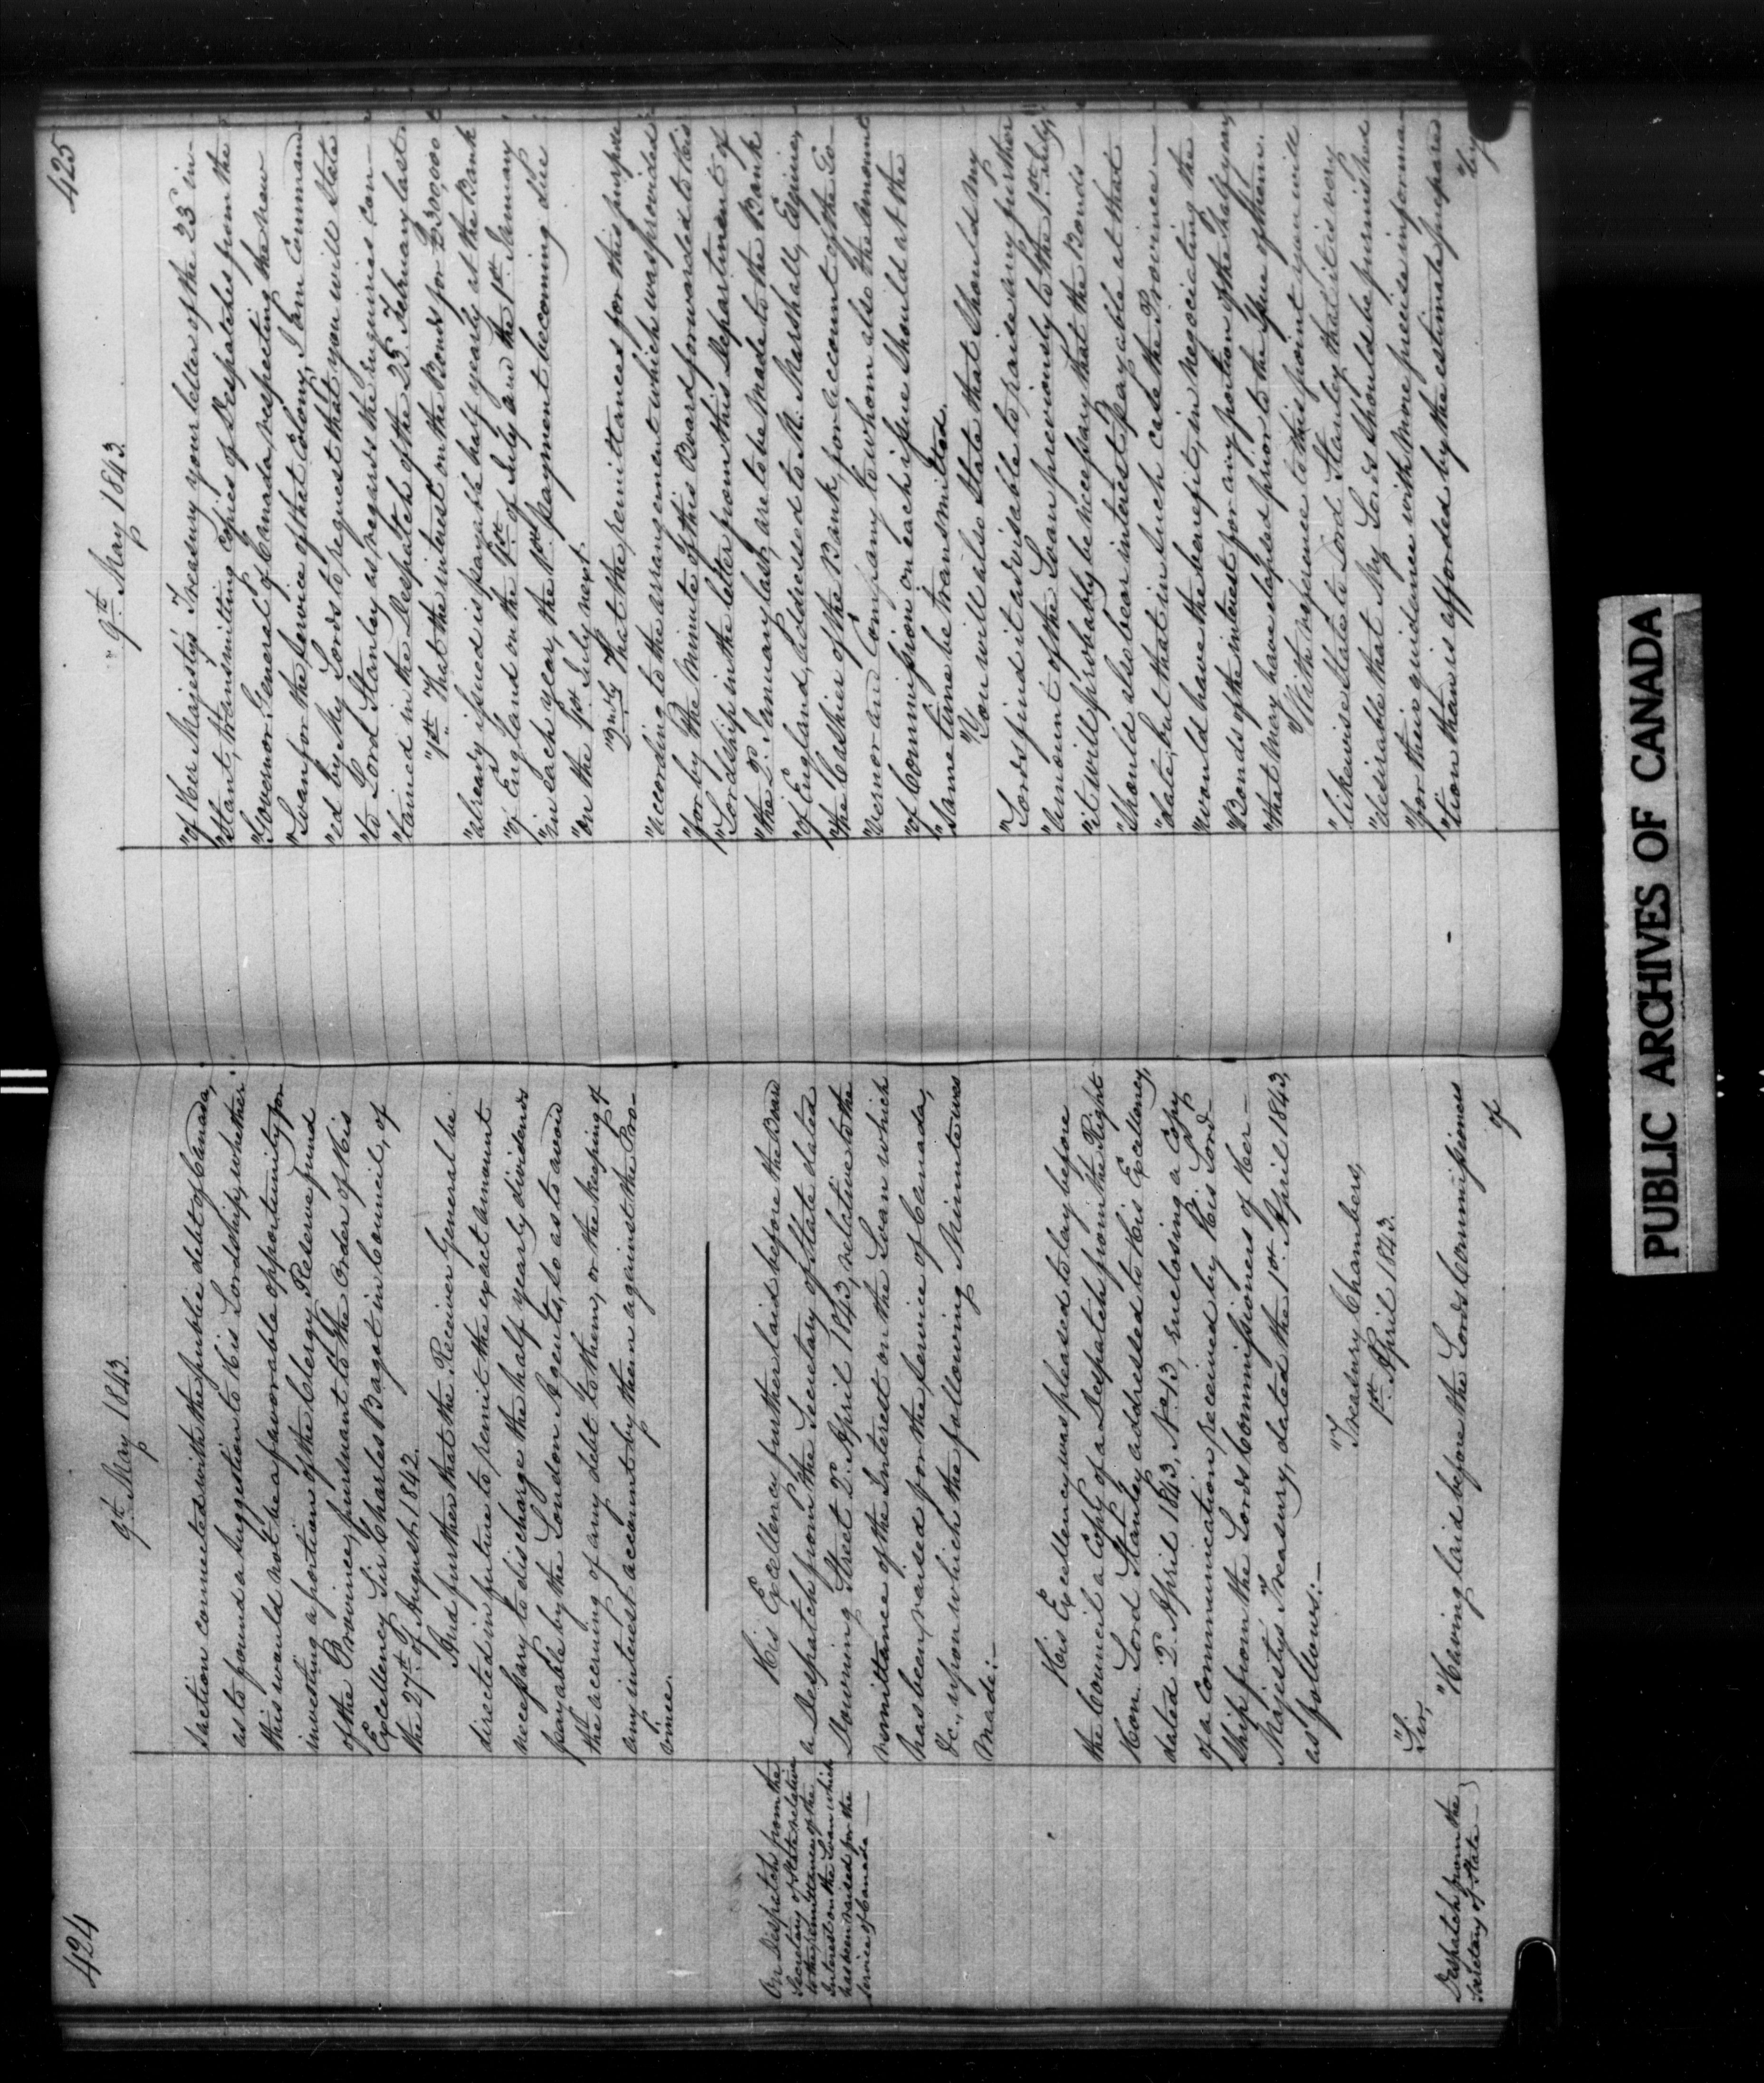 424
9th. May 1843.
saction connected with the public debt of Canada,
as to found a suggestion to His Lordship, whether
this would not be a favorable opportunity for
investing a portion of the Clergy Reserve fund
of the Province, pursuant to the Order of His
Excellency Sir Charles Bagot in Council, of
the 27th. of August 1842.
And further that the Receiver General be
directed in future to remit the exact amount
necessary to discharge the half yearly dividends
payable by the London Agents, so as to avoid
the accruing of any debt to them, or the keeping of
any interest account by them against the Pro-
vince.
On Despatch from the
Secretary of State relative
to the remittance of the
Interest on the Loan which
has been raised for the
service of Canada —
His Excellency further laid before the Board
a Despatch from the Secretary of State dated
Downing Street 2. April 1843, relative to the
remittance of the Interest on the Loan which
has been raised for the service of Canada,
&c., upon which the following Minute was
Made:—
His Excellency was pleased to lay before
the Council a Copy of a Despatch from the Right
Hon. Lord Stanley addressed to His Excellency,
dated 2. April 1843, No. 13, enclosing a Copy
of a Communication received by His Lord-
ship from the Lords Commissioners of Her —
Majesty's Treasury, dated the 1st. April 1843,
as follows:—
"Treasury Chambers,
1st. April 1843.
"Sir,
Despatch from the
Secretary of State —
"Having laid before the Lords Commissioners
of
425
9th. May 1843.
"of Her Majesty's Treasury your letter of the 25 in-
"stant, transmitting copies of Despatches from the
"Governor General of Canada, respecting the new
"Loan for the service of that Colony, I am Command
"ed by My Lords to request that you will state
"to Lord Stanley as regards the Enquiries con-
"tained in the Despatch of the 25. February last.
"1st. That the interest on the Bonds for £300,000
"already issued is payable half yearly at the Bank
"of England on the 1st. of July and the 1st. January
"in each year, the 1st. payment becoming due
"on the 1st. July next.
"2ndly That the remittances for this purpose
"according to the arrangement which was provided
"for by the Minute of this Board forwarded to His
"Lordship in the letter from this Department of
"the January last, are to be made to the Bank
"of England, addressed to M. Marshall, Esquire,
"the Cashier of the Bank, for account of the Go-
"vernor and Company to whom also the amount
"of Commission on each issue should at the
"same time be transmitted.
"You will also State that should My
"Lords find it advisable to raise any further
"amount of the Loan previously to the 1st. July,
"it will probably be necessary that the Bonds —
"should also bear interest payable at that
"date, but that in such case the Province —
"would have the benefit, in negociating the
"Bonds of the interest for any portion of the half year,
"that may have elapsed prior to the issue of them.
"With reference to this point you will
"likewise State to Lord Stanley that it is very
"desirable that My Lords should be furnished
"for their guidance with more precise informa-
"tion than is afforded by the estimate prepared
"by
PUBLIC ARCHIVES OF CANADA